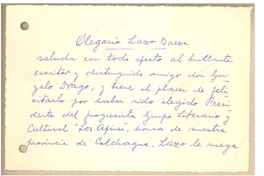 Olegario Lazo Baeza
saluda con todo afecto al brillante
escritor y distinguido amigo don Gon-
zalo Drago, y tiene el placer de feli-
citarlo por haber sido elegido Presi-
dente del progresista Grupo Literario y
Cultural "Los Afines", honra de nuestra
provincia de Colchagua. Lazo le ruega